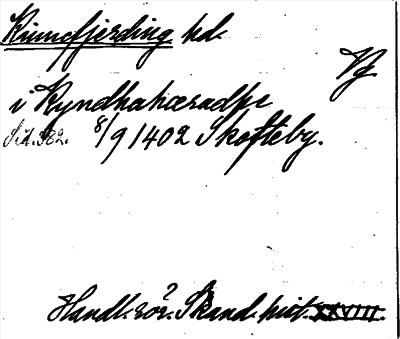 Kinnefjerding hd.
Vg
i Kyndhahæradhe
S.d. 382. 8/9 1402 Skofteby.
Handl. rör? Skand. hist. XXVIII.